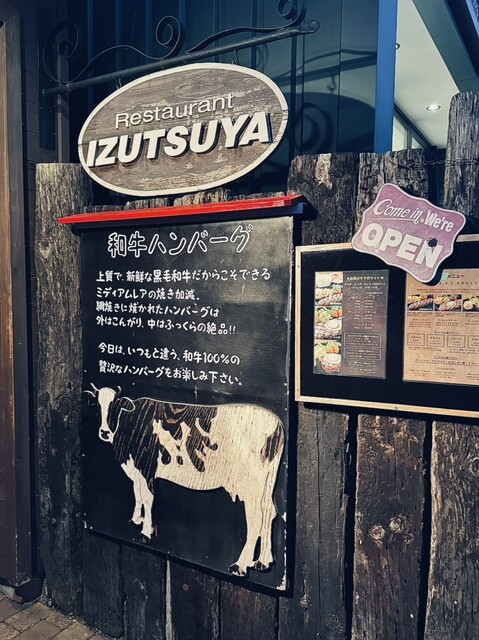 Restaurant
IZUTSUYA
和牛ハンバーグ
上質で、新鮮な黒毛和牛だからこそできる
ミディアムレアの焼き加減、
網焼きに焼かれたハンバーグは
外はこんがり、中はふっくらの絶品!!
今日は、いつもと違う、和牛100%の
贅沢なハンバーグをお楽しみ下さい。
Come in, We're
OPEN
メニュー